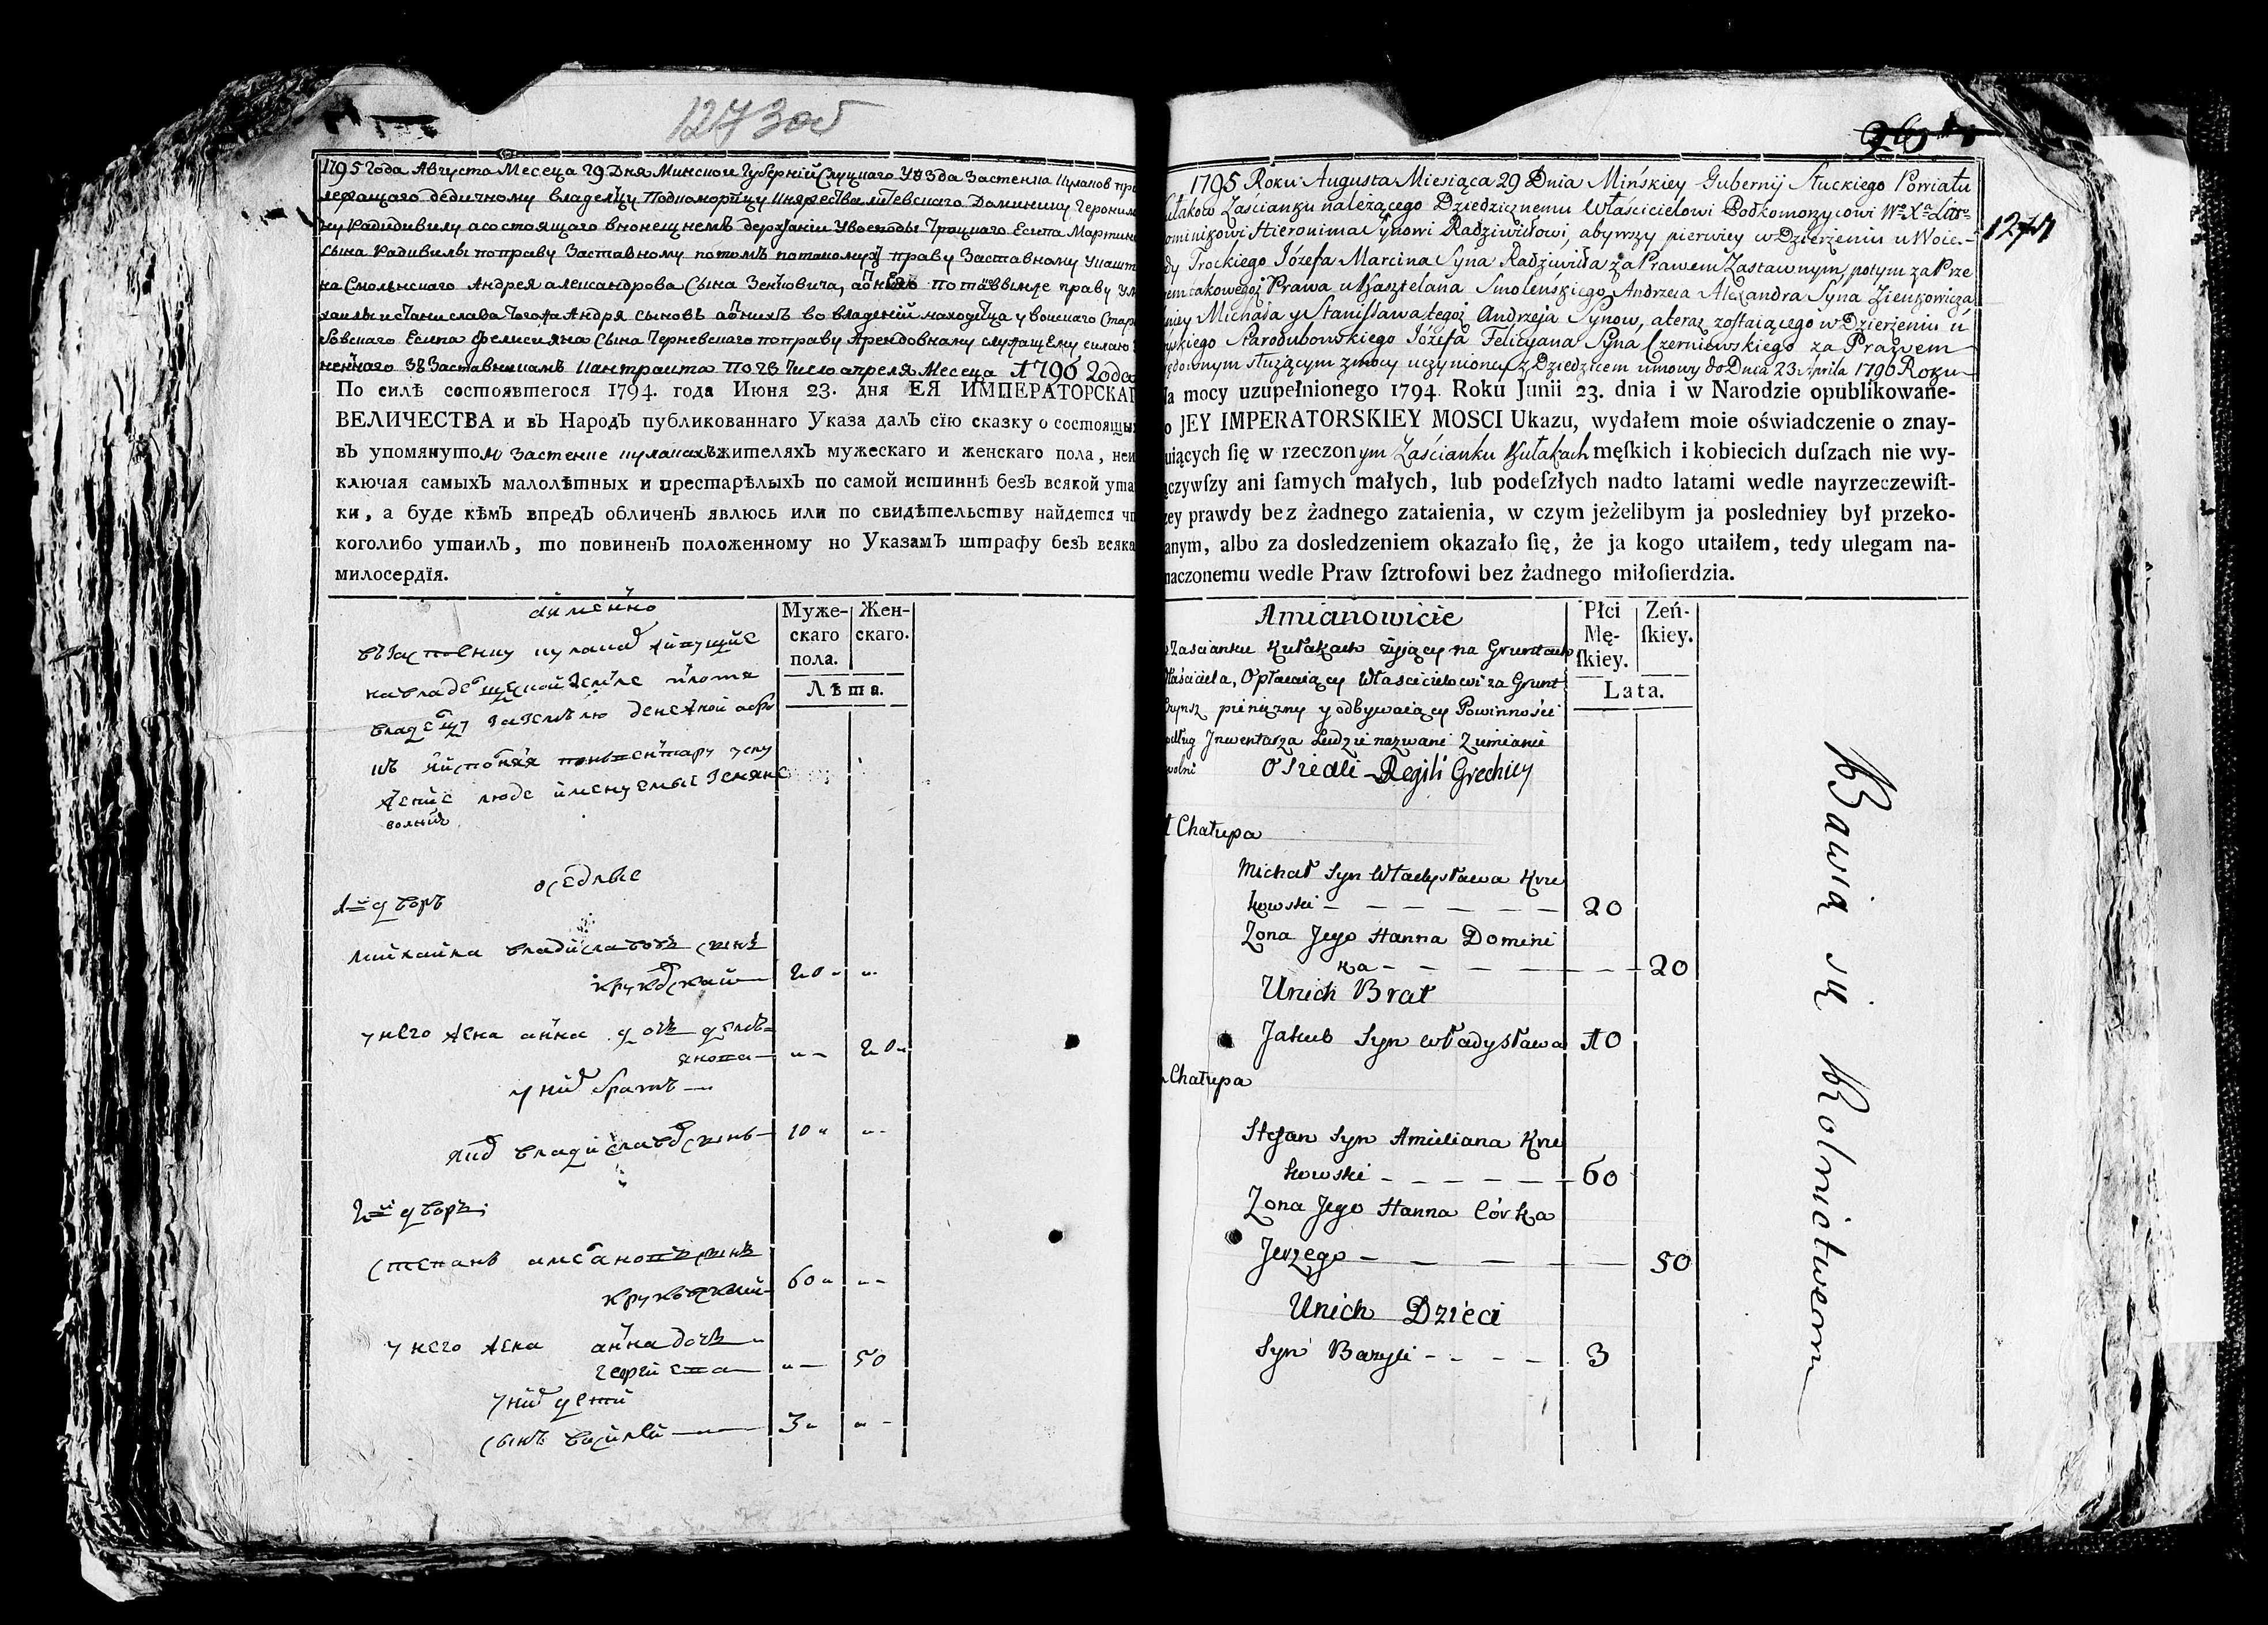 1273 об
1795 года Августа Месеца 29 Дня Минской Губерній Слуцкаго Уѣзда Застенка Кулаков при
лежащаго дедичному владелцу Подкоморицу Княжества литевскаго Доминику Героним
ву Радивилу а состоящаго в нонешнемъ держаніи У воеводы Троцкаго Есипа Мартина
сына Радивилы по праву Заставному потомъ по такомуж праву Заставному У кашт
на Смоленскаго Андрея александрова Сына Зенковича, а по Праву У
хаилы и станислава того ж Андря сыновъ а во владеній находитца у воискаго Стар
бовскаго Есипа Фелисияна Сына Черневскаго по праву Арендовному служащему силаю
неннаго Контракта По 23 Число апреля Месеца 1796 Года
По силѣ состоявшегося 1794. года Июня 23. дня ЕЯ ИМПЕРАТОРСКАГ
ВЕЛИЧЕСТВА и въ Народъ публикованнаго Указа далъ сію сказку о состоящы
въ упомянутом Застенке кулаках жителяхъ мужескаго и женскаго пола, неи
ключая самыхъ малолѣтныхъ и престарѣлыхъ по самой истиннѣ безъ всякой ута
ки, а буде кѣмъ впредъ обличенъ явлюсь или по свидѣтельству найдется чт
коголибо утаилъ, то повиненъ положенному но Указамъ штрафу безъ всяка
милосердїя.
аименно
Муже- Жен-
скаго скаго.
пола.
Лѣта.
въ Застенку кулаках живущие
на владелческой Земле плотя
владелцу за Землю денежной
люде именуемые Земяне
волние
оседлые
1й дворъ
михайла владиславовъ сынъ
круковскай 20
у него жена анна дочь
20
у них братъ
яков владиславов сынъ 10
2й дворъ
степанъ сынъ
круковскай 60
у него жена анна дочь
георгиева 50
у них дети
сынъ василей 3
26
1274
1795 Roku Augusta Miesiąca 29 Dnia Mińskiey Gubernij Słuckiego Powiatu
ułakow Zaścianku należącego Dziedzicznemu Właścicielowi Podkomorzycowi Wo Xa Litto
ominikowi Hieronima Synowi Radziwiłłowi, a bywszy pierwiey w Dzierżeniu u Woie-
dy Trockiego Józefa Marcina Syna Radziwiłła za Prawem Zastawnym, potym za Prze
em takowegoż Prawa u Kasztelana Smoleńskiego Andrzeia Alexandra Syna Zienkowicza
Michała y Stanisława tegoż Andrzeja Synow, a teraz zostaiącego w Dzierżeniu ú
yskiego Starodubowskiego Józefa Felicyana Syna Czerniewskiego za Prawem
ędownym służącym z mocy uczynioney z Dziedzicem umowy do Dnia 23 Aprila 1796 Roku
a mocy uzupełnionego 1794. Roku Junii 23. dnia i w Narodzie opublikowane-
o JEY IMPERATORSKIEY MOSCI Ukazu, wydałem moie oświadczenie o znay-
uiących ſię w rzeczonym Zaścianku Kułakach męſkich i kobiecich duſzach nie wy-
ączywſzy ani ſamych małych, lub podeſzłych nadto latami wedle nayrzeczewiſt-
zey prawdy bez żadnego zataienia, w czym jeżelibym ja posledniey był przeko-
anym, albo za dosledzeniem okazało ſię, że ja kogo utaiłem, tedy ulegam na-
naczonemu wedle Praw ſztrofowi bez żadnego miłoſierdzia.
Amianowicie
Płci Zeń-
Mę- ſkiey.
ſkiey.
Lata.
Zascianku Kułakach żyjący na Gruntach
łaściciela, Opłacaiący Własciciclowi za Grunt
Czynsz pieniężny y odbywaiący Powinności
odług Jnwentarza Ludzie nazwani Ziemianie
wolni Osiedli Regili Greckiey
1 Chałupa
Michał Syn Władysława Kru
kowski 20
Zona Jego Hanna Domini
ka 20
Unich Brat
Jakub Syn Władysława 10
Chałupa
Stefan Syn Amieliana Kru
kowski 60
Zona Jego Hanna Córka
Jerzego 50
Unich Dzieci
Syn Bazyli 3
Bawią się Rolnictwem